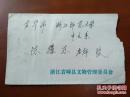 金华市 浙江师范大学
中文系
陈耀东 老师 收
浙江省嵊县文物管理委员会